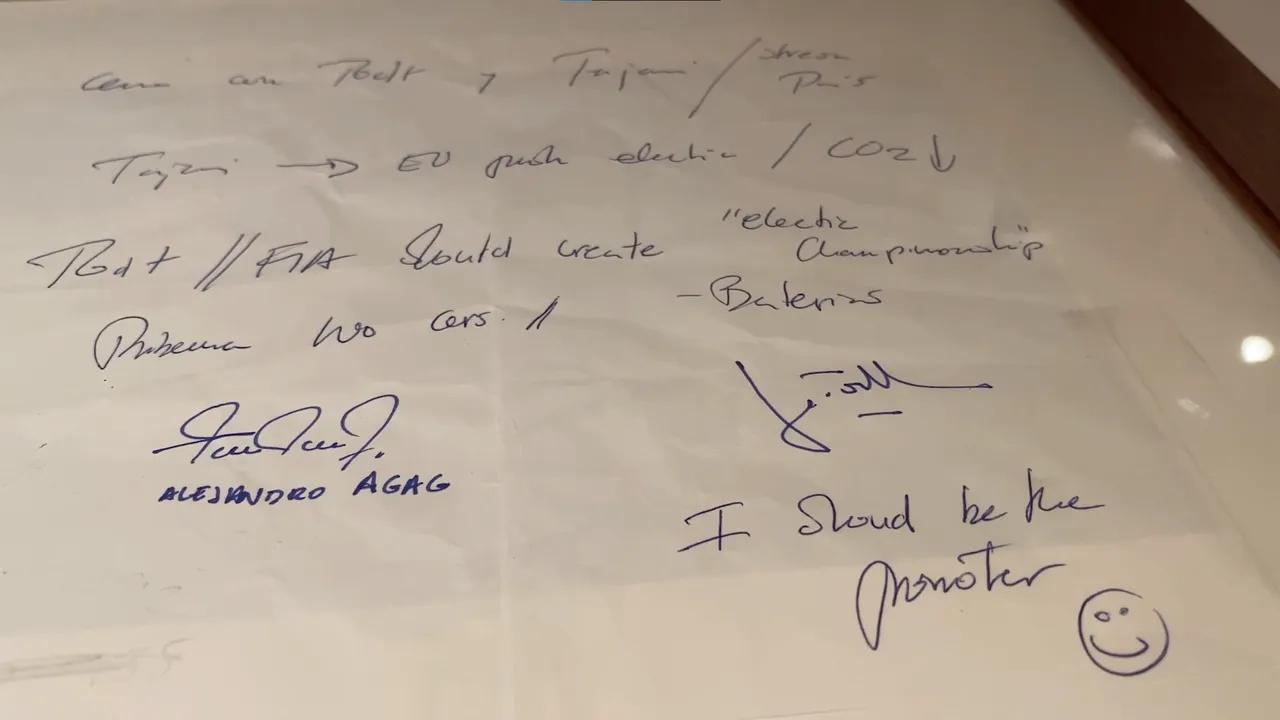 Cena con Todt y Tajani / stresa Paris
Tajani → EU push electric / CO2 ↓
Todt // FIA should create "electric Championship"
- Baterias
Problema two cars. //
ALEJANDRO AGAG
J. Todt
I Should be the
promoter